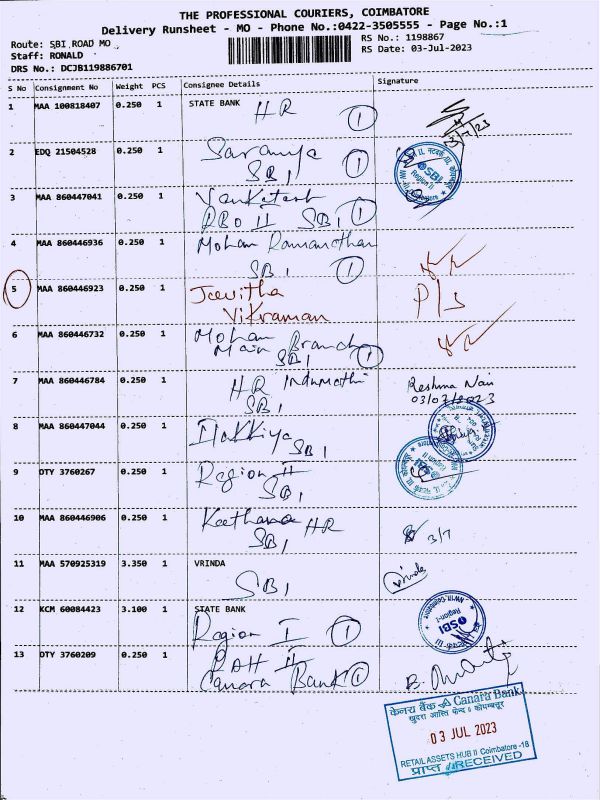 THE PROFESSIONAL COURIERS, COIMBATORE
Delivery Runsheet - MO - Phone No.:0422-3505555 - Page No.:1
Route: SBI ROAD MO
RS No.: 1198867
Staff: RONALD
RS Date: 03-Jul-2023
DRS No.: DCJB119886701
S No Consignment No Weight PCS Consignee Details Signature
1 MAA 100818407 0.250 1 STATE BANK
HR 1
3/7/23
2 EDQ 21504528 0.250 1 Saranya
SBI 1
SBI
Region II
3 MAA 860447041 0.250 1 Venkatesh
RBO II SBI 1
4 MAA 860446936 0.250 1 Mohan Ramanathan
SBI 1
5 MAA 860446923 0.250 1 Jeevitha P/S
Vikraman
6 MAA 860446732 0.250 1 Mohan
Main Branch
SBI 1
7 MAA 860446784 0.250 1 HR Indumathi Reshma Nair
SBI 03/07/2023
8 MAA 860447044 0.250 1 Ilakkiya
SBI
9 DTY 3760267 0.250 1 Region II
SBI
SBI
Region II
10 MAA 860446906 0.250 1 Keethana HR 3/7
SBI
11 MAA 570925319 3.350 1 VRINDA Vrinda
SBI
12 KCM 60084423 3.100 1 STATE BANK
Region I 1
SBI
Region-1
13 DTY 3760209 0.250 1 RAH II
Canara Bank 1
केनरा बैंक Canara Bank
03 JUL 2023
RETAIL ASSETS HUB II Coimbatore -18
प्राप्त RECEIVED